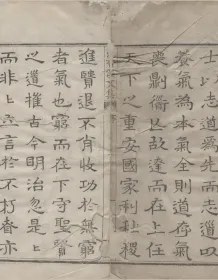 士以志為先而志道
養氣為本氣全則道存氣
喪則道亡故達而在上任
天下之重安國家利社稷
進賢退不肖收功於無窮
者氣也窮而在下守聖賢
之道搉古今明治忽是〻
而非〻立言於不朽者亦